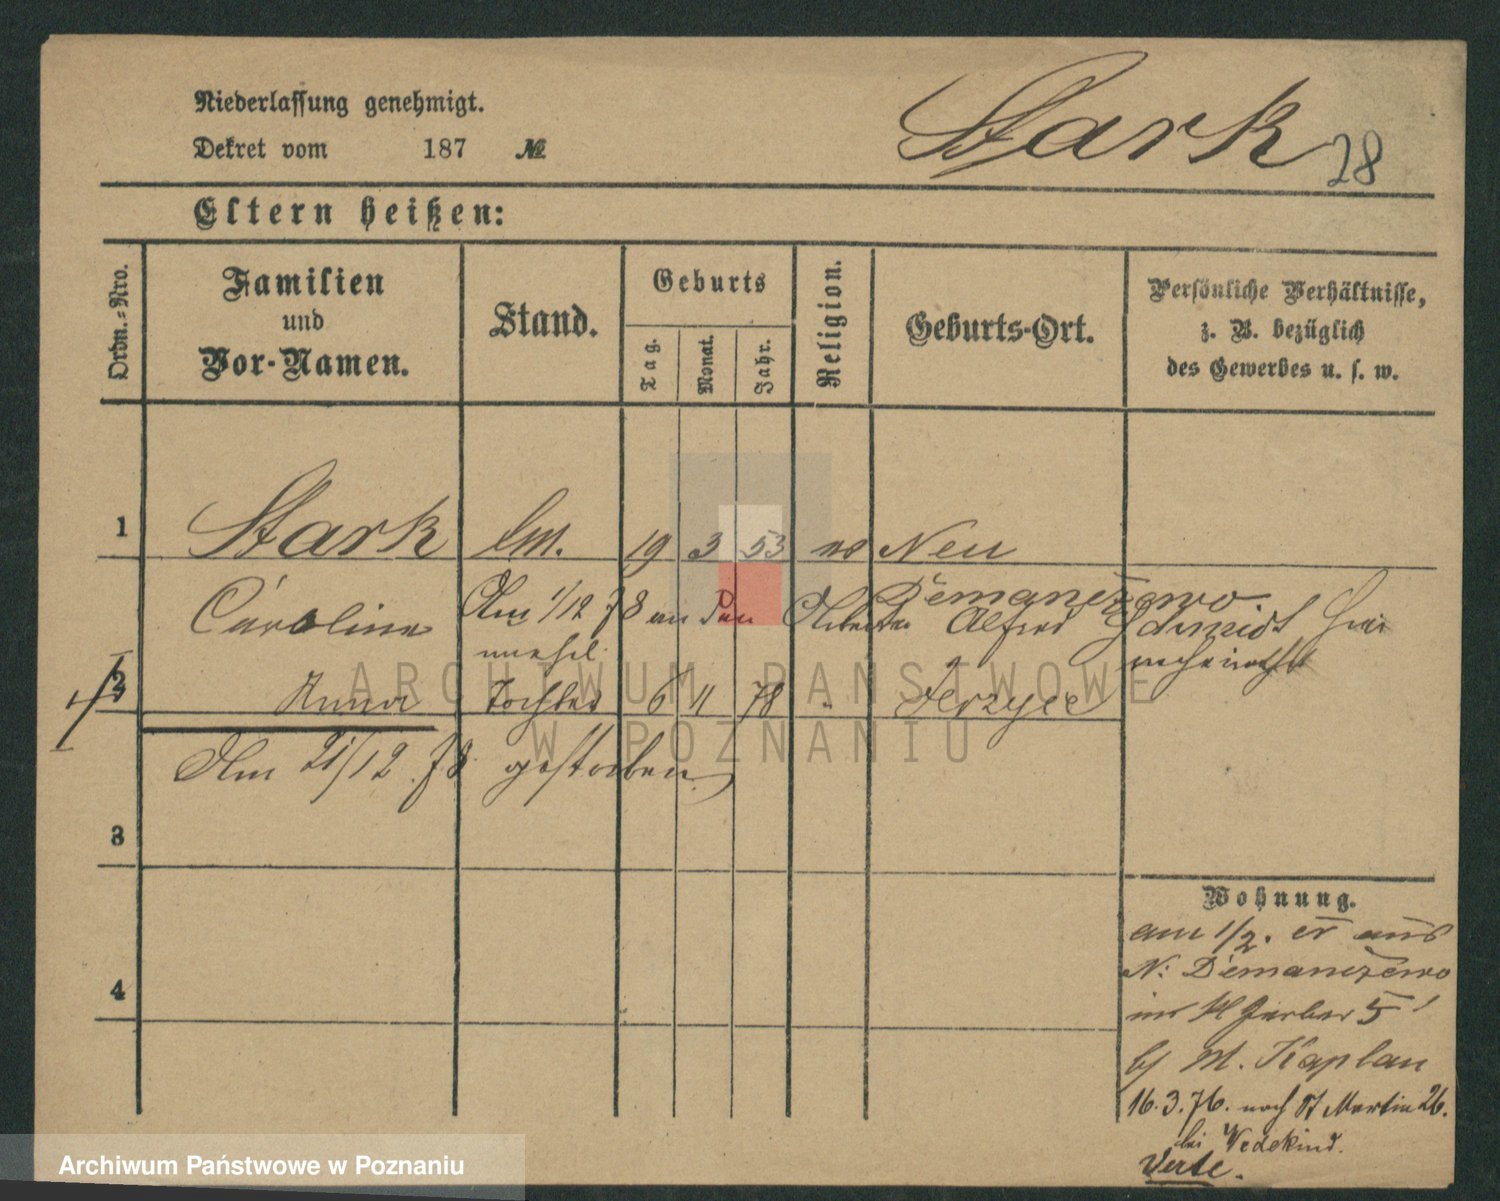 Niederlassung genehmigt.
Stark 28
Dekret vom 187 №
Eltern heißen:
Ordn.-Nro.
Familien
und
Vor-Namen.
Stand.
Geburts
Tag.
Monat.
Jahr.
Religion.
Geburts-Ort.
Persönliche Verhältnisse,
z. B. bezüglich
des Gewerbes u. s. w.
1 Stark 19 3 53 Neu
Demanczewo
Caroline Am 1/12 78 an Alfred Schmidt hier
unehel.
2 Anna Tochter 6 11 78 " Jerzyce
Am 21/12 78 gestorben
3
4
Wohnung.
am 1/2. cr aus
N: Demanczewo
Gerber 5
bj M. Kaplan
16.3.76. nach St Martin 26.
bei Wedekind.
Verte.
ARCHIWUM PAŃSTWOWE
W POZNANIU
Archiwum Państwowe w Poznaniu